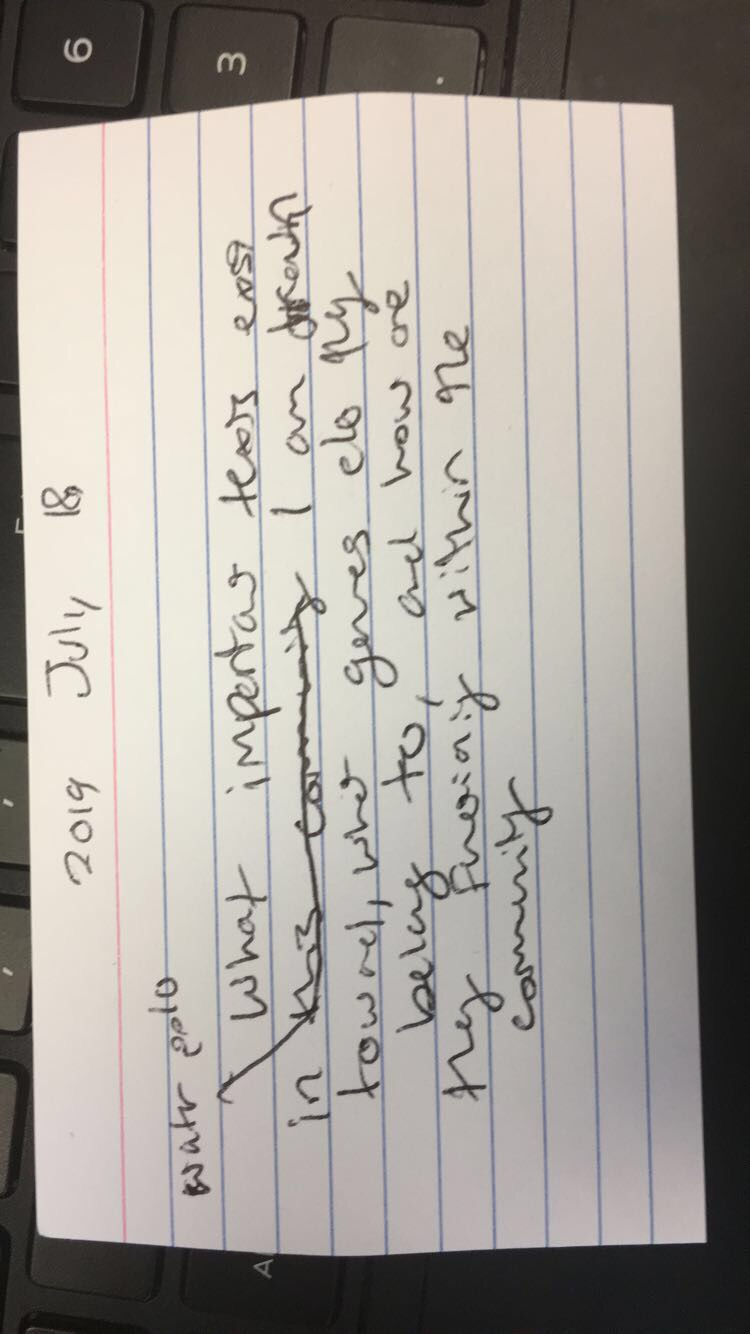 2019 July 18
What important texts exist
in this community I am
toward, what genres do they
belong to, and how are
they functioning within the
community
6
3
.
A